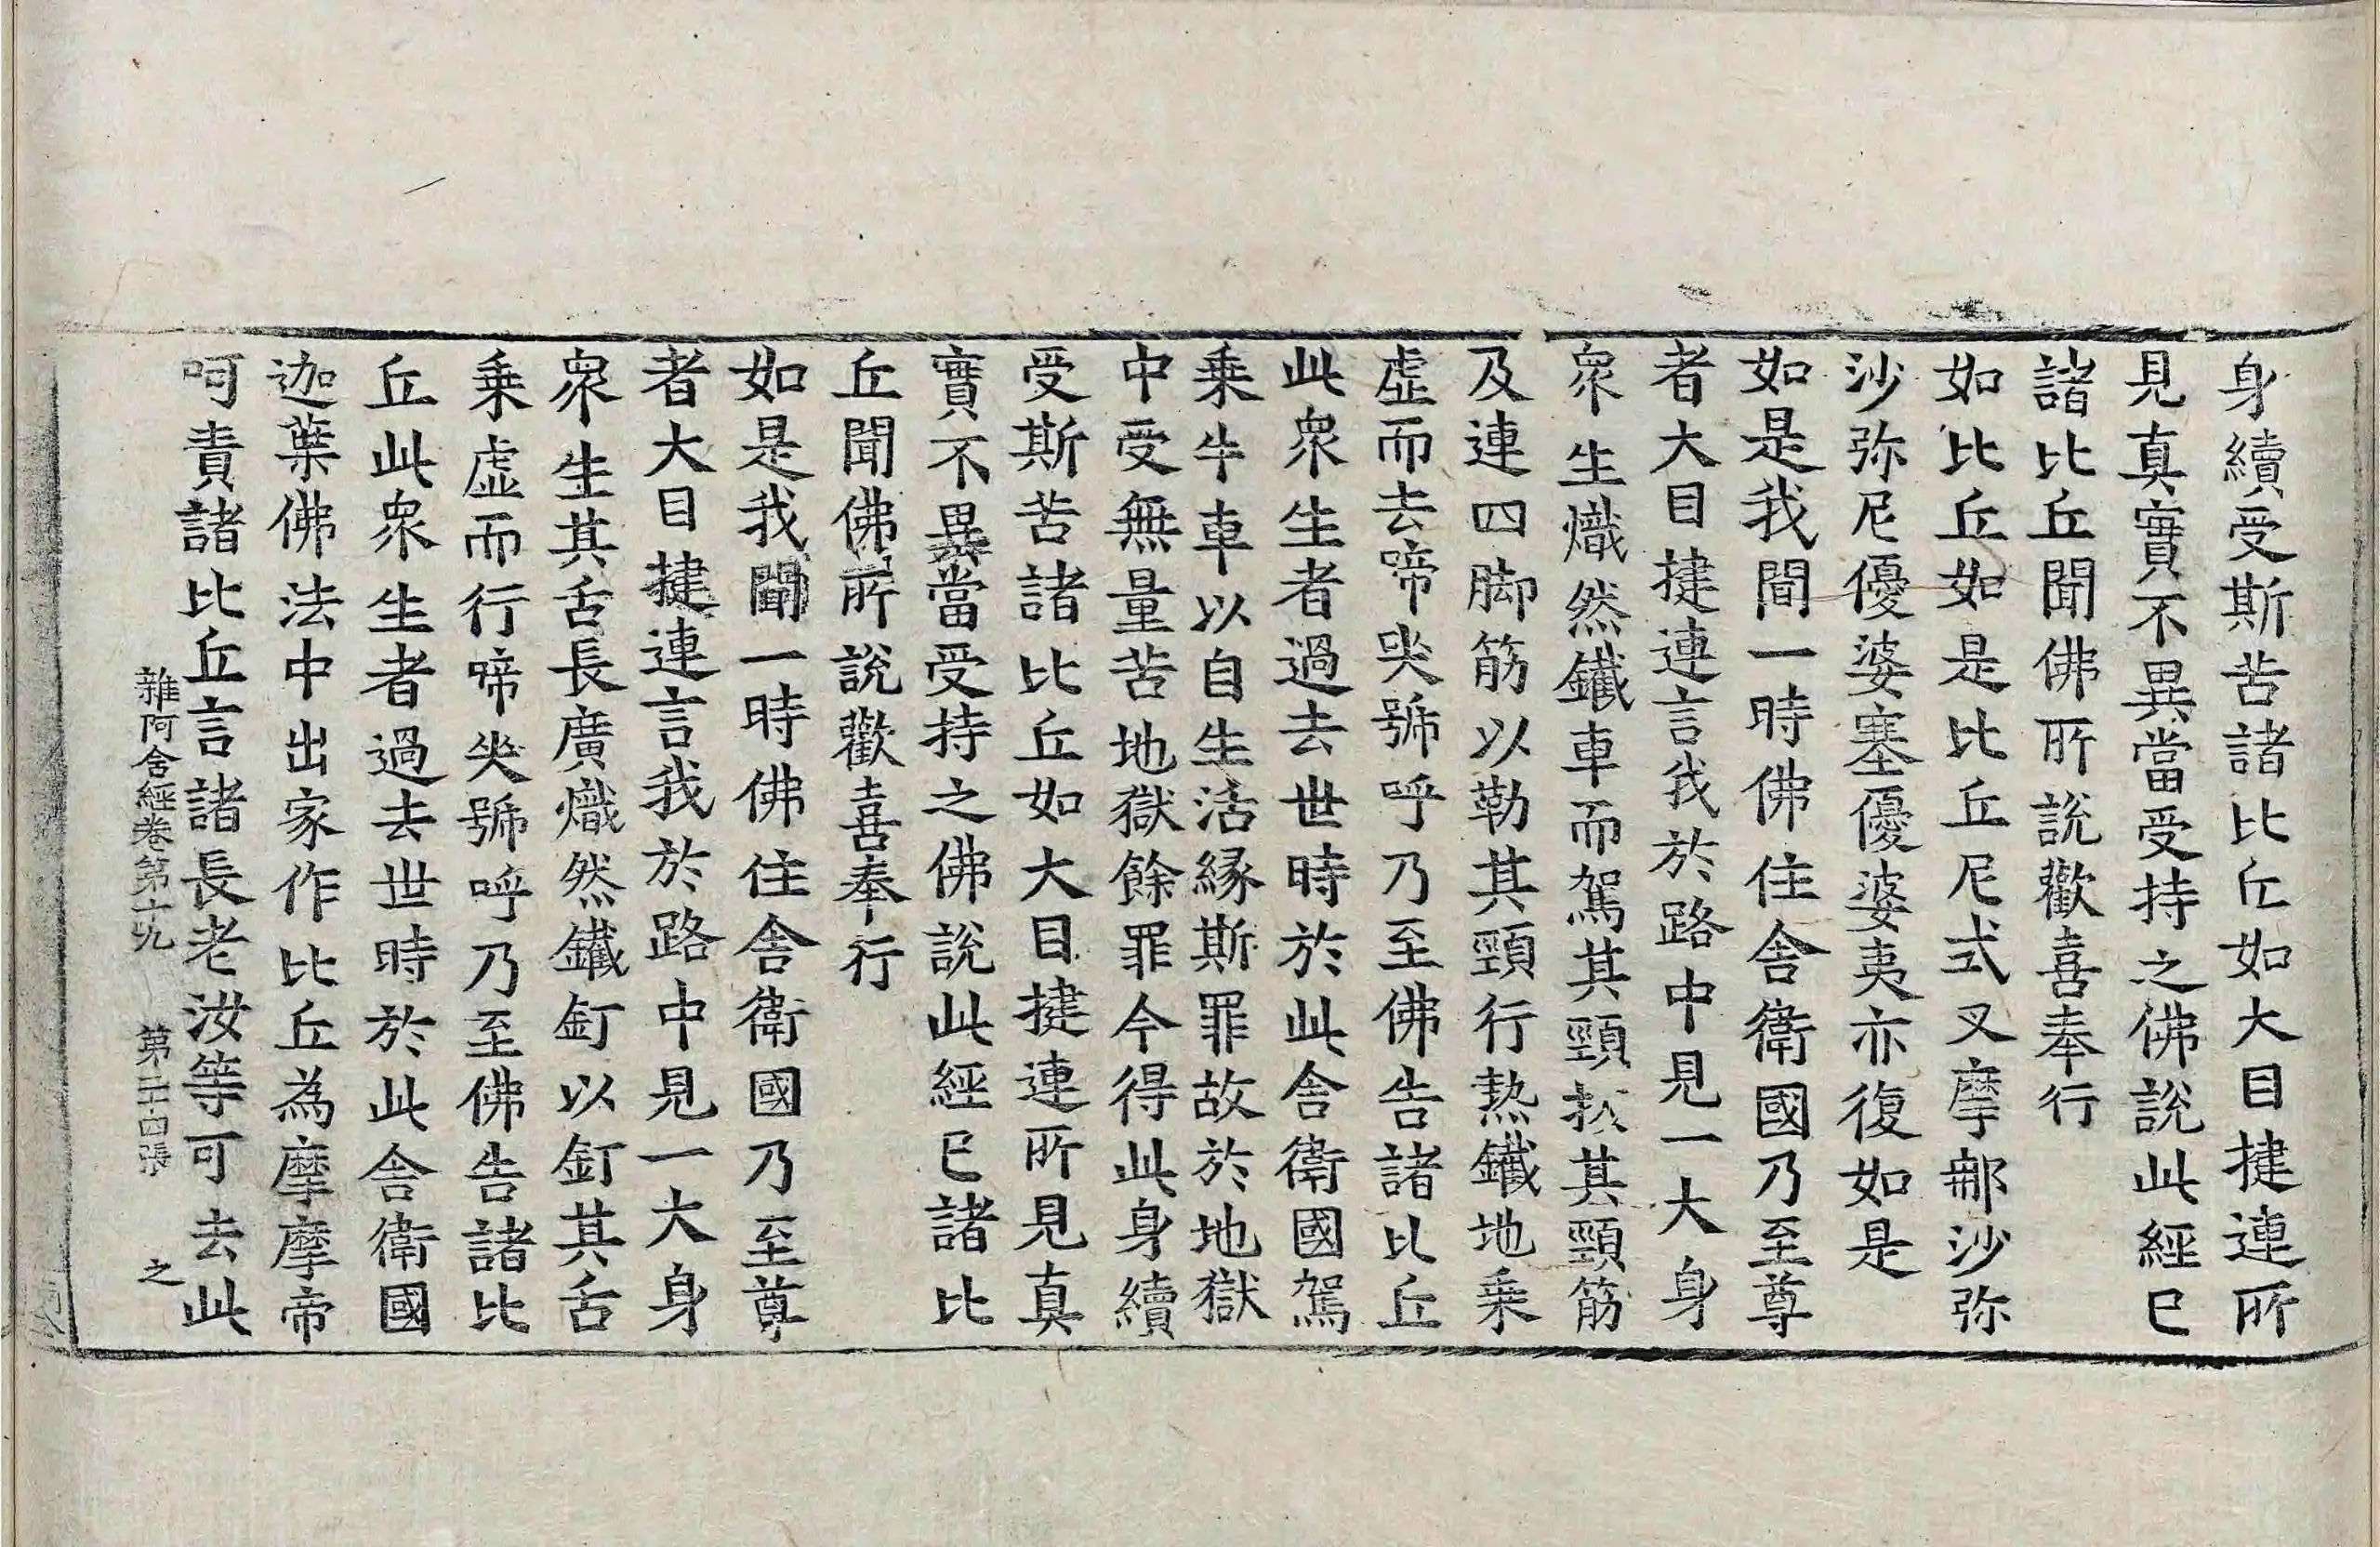 身續受斯苦諸比丘如大目揵連所
見真實不異當受持之佛說此經已
諸比丘聞佛所說歡喜奉行
如比丘如是比丘尼式叉摩那沙弥
沙弥尼優婆塞優婆夷亦復如是
如是我聞一時佛住舍衛國乃至尊
者大目揵連言我於路中見一大身
衆生熾然鐵車而駕其頸抜其頸筋
及連四脚筋以勒其頸行熱鐵地乗
虛而去啼哭號呼乃至佛告諸比丘
此衆生者過去世時於此舍衛國駕
乗牛車以自生活縁斯罪故於地獄
中受無量苦地獄餘罪今得此身續
受斯苦諸比丘如大目揵連所見真
實不異當受持之佛說此經已諸比
丘聞佛所說歡喜奉行
如是我聞一時佛住舍衛國乃至尊
者大目揵連言我於路中見一大身
衆生其舌長廣熾然鐵釘以釘其舌
乗虛而行啼哭號呼乃至佛告諸比
丘此衆生者過去世時於此舍衛國
迦葉佛法中出家作比丘為摩摩帝
呵責諸比丘言諸長老汝等可去此
雜阿含經卷第十九 第二十四張 之